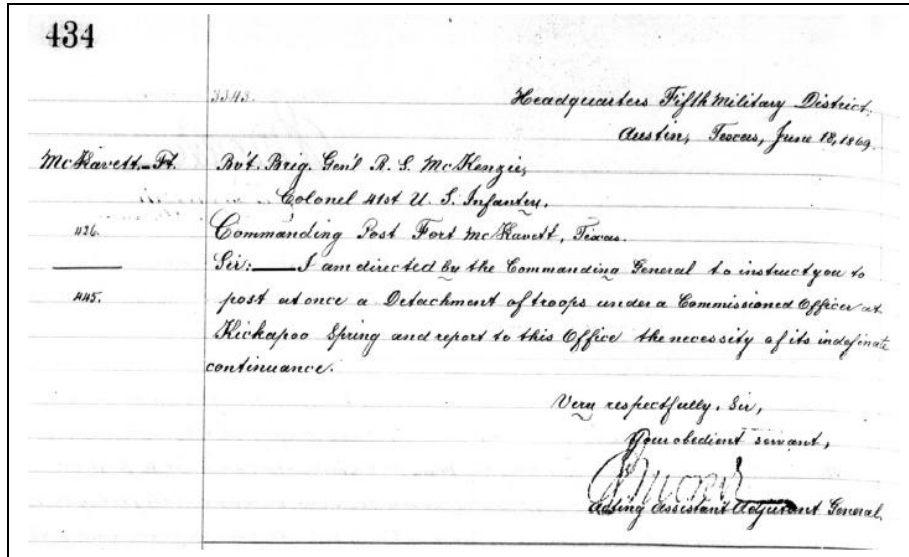 434
3343.
Headquarters Fifth Military District.
Austin, Texas, June 18, 1869.
McKavett. Ft.
Bvt. Brig. Gen'l R. S. McKenzie,
Colonel 41st U. S. Infantry,
426.
Commanding Post Fort McKavett, Texas.
Sir: I am directed by the Commanding General to instruct you to
445.
post at once a Detachment of troops under a Commissioned Officer at
Kickapoo Spring and report to this Office the necessity of its indefinate
continuance.
Very respectfully, Sir,
Your obedient servant,
Acting Assistant Adjutant General.